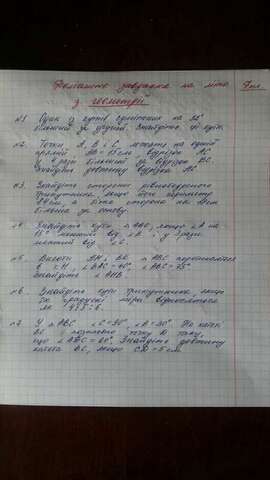 Домашнє завдання на літо 7 кл.
з геометрії
№1. Один з кутів
більший за другий. Знайдіть ці кути.
№2. Точки A, B і C лежать на одній
прямій AB = 15 см, відрізок AC
у 4 рази більший за відрізок BC.
Знайдіть довжину відрізка AC
№3. Знайдіть сторони рівнобедреного
трикутника, якщо його периметр
см, а бічна сторона на 4 см
більша за основу.
№4. Знайдіть кути △ABC, якщо ∠A на
15° менший від ∠B і у 2 рази
менший від ∠C.
№5. Висоти і перетинаються
в т. H, ∠BAC = °, ∠ABC = 75°
Знайдіть ∠AHB.
№6. Знайдіть кути трикутника якщо
їх градусні міри відносяться
як
№7. У △ABC ∠C = 90°, ∠A = 30°. На катеті
позначено точку D так,
що ∠ = 60°. Знайдіть довжину
катета, якщо CD = 5 см.